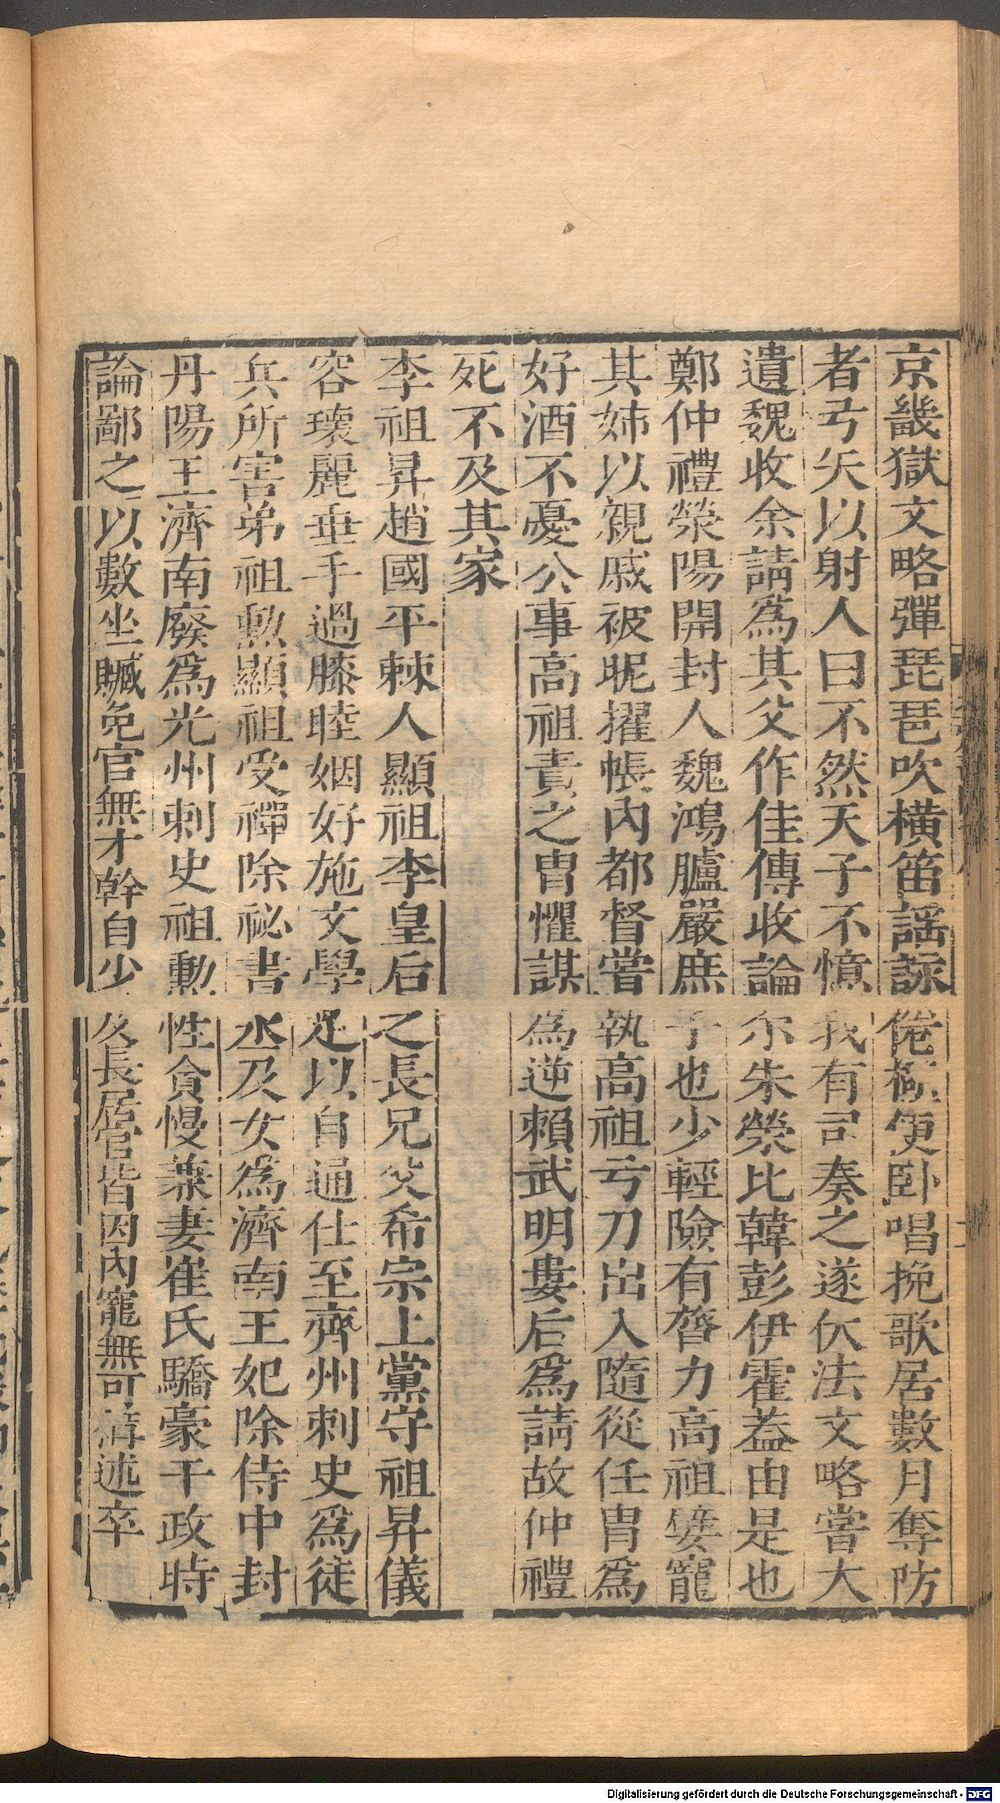 京畿獄文略彈琵琶吹橫笛謡詠倦極便卧唱挽歌居數月奪防
者弓矢以射人曰不然天子不憶我有司奏之遂伏法文略嘗大
遺魏收余請爲其父作佳傳收論尒朱榮比韓彭伊霍葢由是也
鄭仲禮滎陽開封人魏鴻臚嚴庶子也少輕險有膂力高祖嬖寵
其姊以親戚被昵擢帳內都督嘗執高祖弓刀出入隨從任胄爲
好酒不憂公事高祖責之胄懼謀爲逆賴武明婁后爲請故仲禮
死不及其家
李祖昇趙國平棘人顯祖李皇后之長兄父希宗上黨守祖昇儀
容瓌麗垂手過膝睦姻好施文學足以自通仕至齊州刺史爲徒
兵所害弟祖勲顯祖受禪除祕書丞及女爲濟南王妃除侍中封
丹陽王濟南廢爲光州刺史祖勲性貪慢兼妻崔氏驕豪干政時
論鄙之以數坐贓免官無才幹自少及長居官皆因內寵無可稱述卒
Digitalisierung gefördert durch die Deutsche Forschungsgemeinschaft - DFG